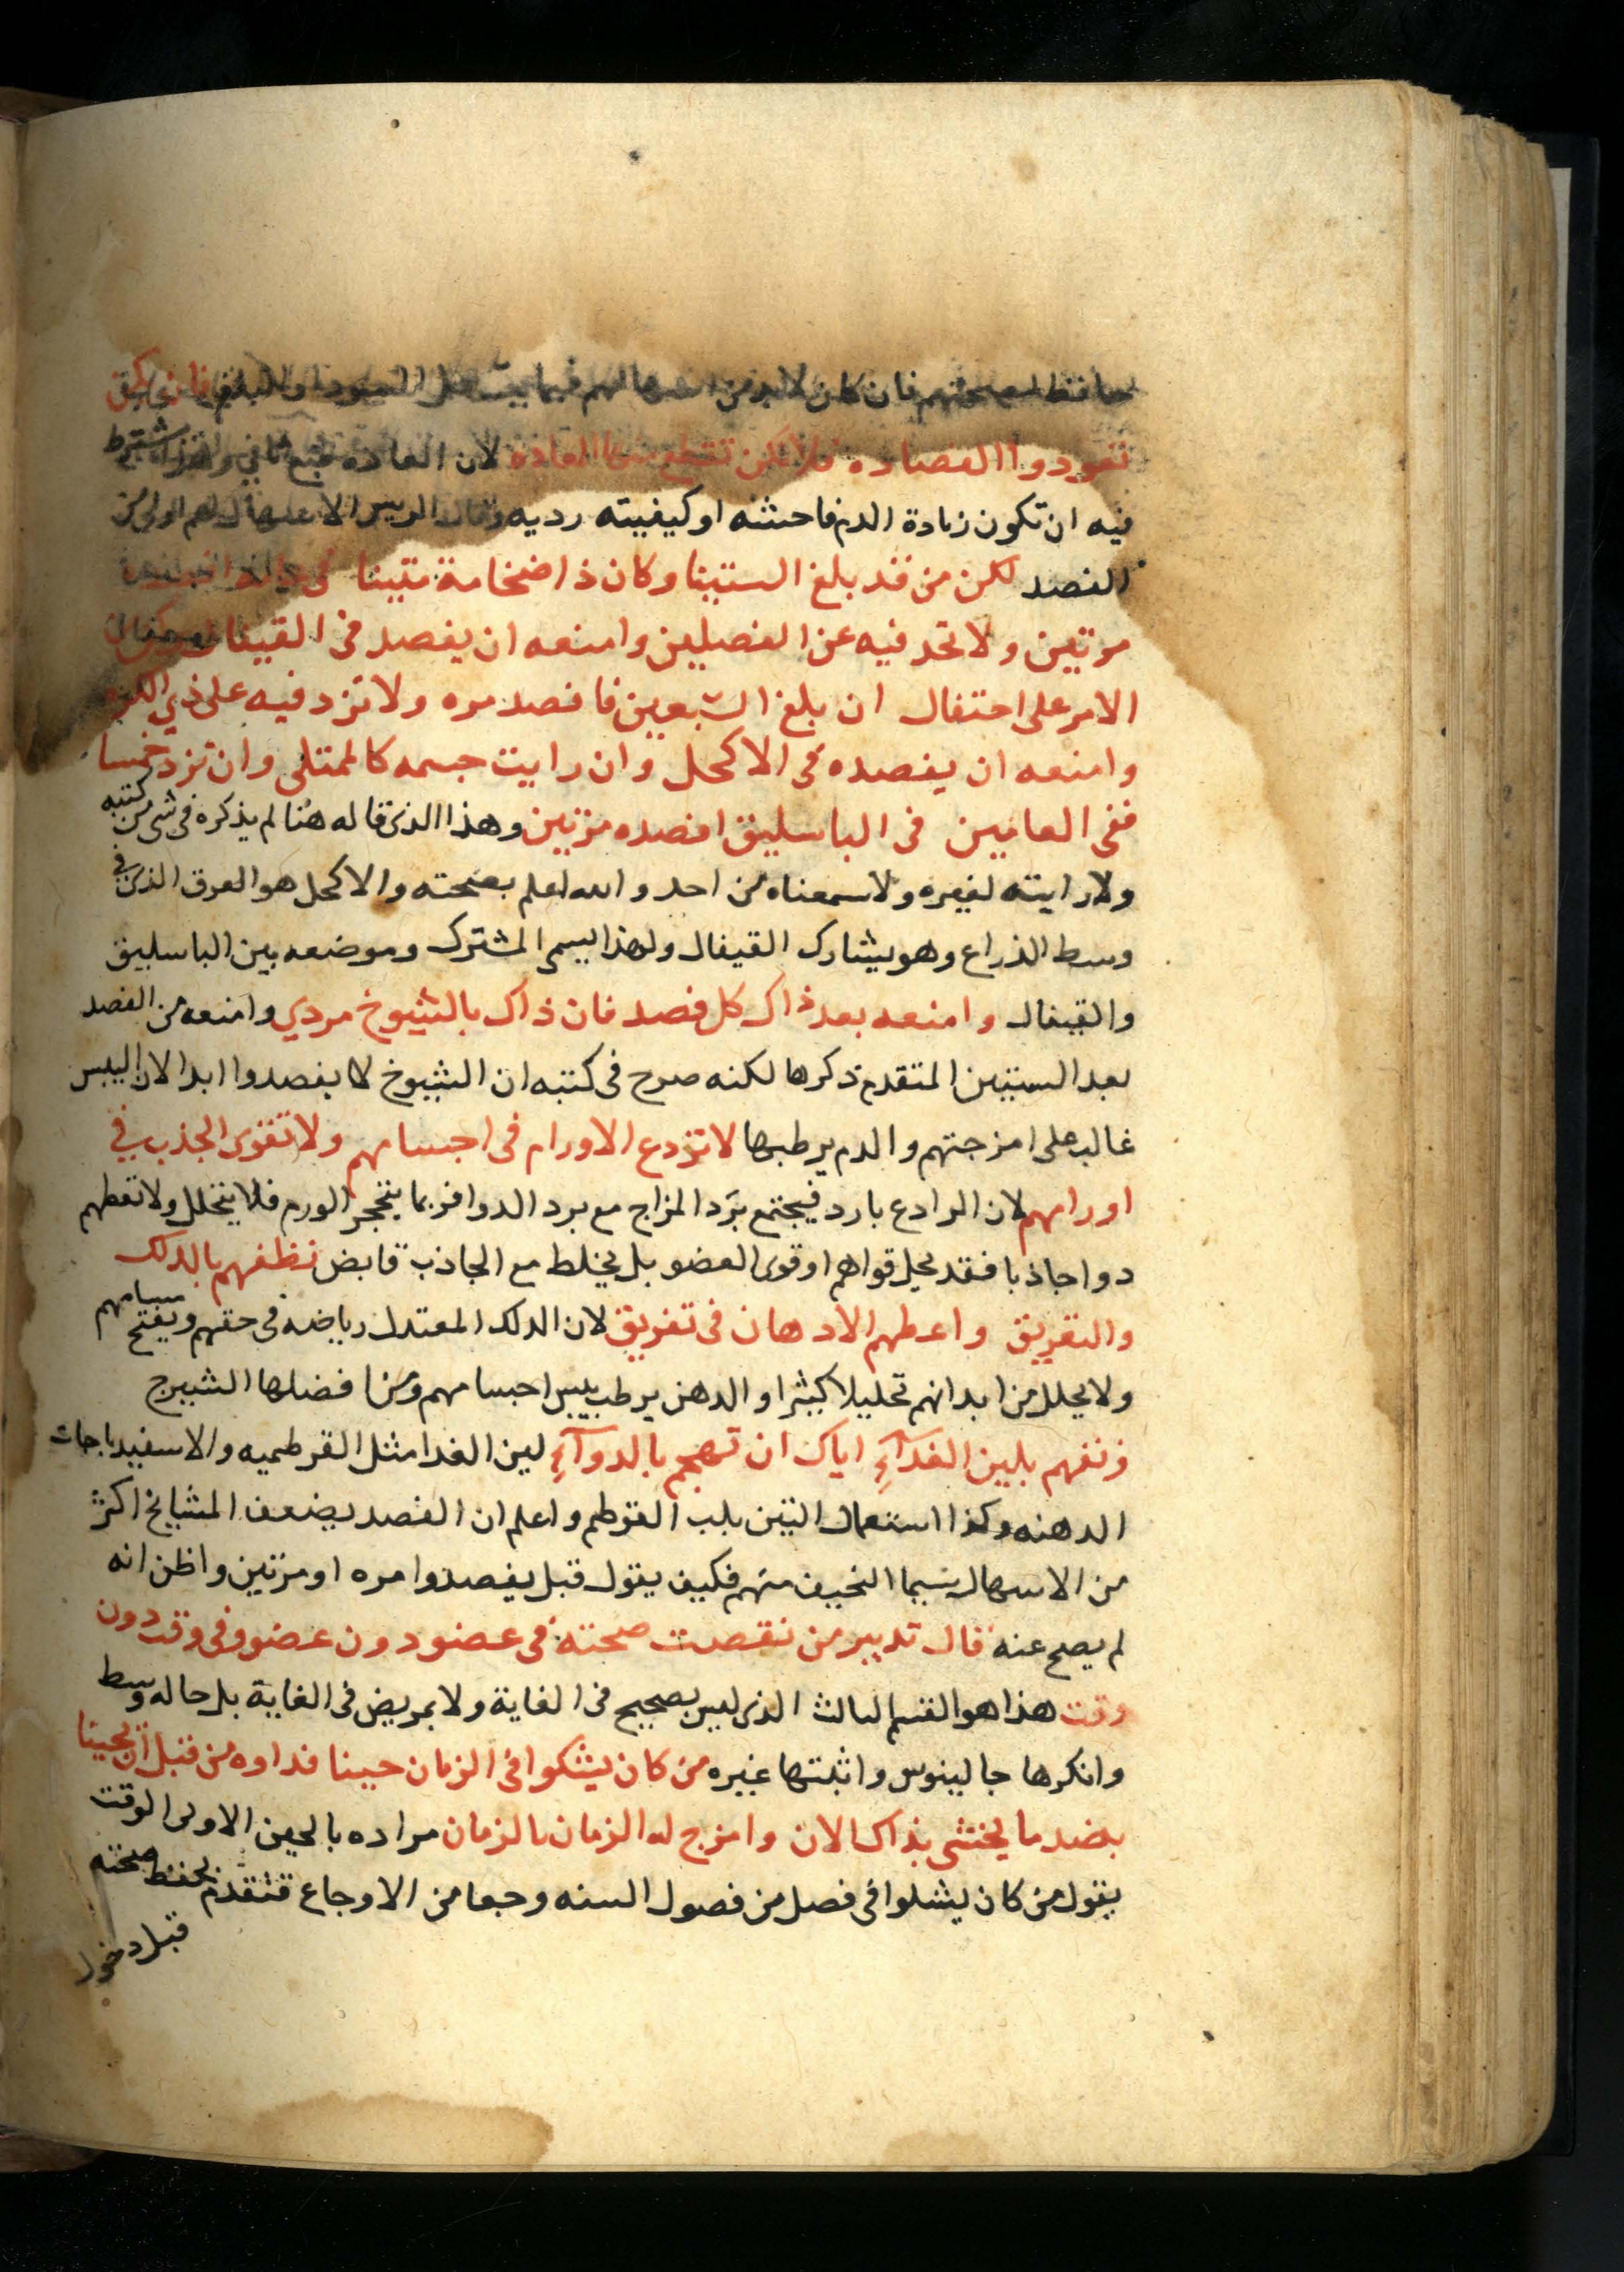 حافظ لصحتهم فان كان لابد من اسهالهم فبما يسهل السودا والبلغم فان يكن
تعودوا الفصاده فلا تكن تقطع منها العاده لان العاده طبع ثاني ويشترط
فيه ان تكون زيادة الدم فاحشه او كيفيته رديه وقال الريس الاسهال لهم اولى من
الفصد لكن من قد بلغ الستينا وكان ذا ضخامة متينا
مرتين ولا تحد فيه عن الفصلين وامنعه ان يفصد في القيفال
الامر على احتفال ان بلغ السبعين فافصد مره ولا تزد فيه على ذي الكره
وامنعه ان يفصده في الاكحل وان رايت جسمه كالممتلي وان تزد خمسا
ففي العامين في الباسليق افصده مرتين وهذا الذي قاله هنا لم يذكره في شي من كتبه
ولا رايته لغيره ولا سمعناه من احد والله اعلم بصحته والاكحل هو العرق الذي في
وسط الذراع وهو يشارك القيفال ولهذا يسمى المشترك وموضعه بين الباسليق
والقيفال وامنعه بعد ذاك كل فصد فان ذاك بالشيوخ مردي وامنعه من الفصد
بعد الستين المتقدم ذكرها لكنه صرح في كتبه ان الشيوخ لا يفصدوا ابدا لان اليبس
غالب على امزجتهم والدم يرطبها لا تردع الاورام في اجسامهم ولا تقوى الجذب في
اورامهم لان الرادع بارد فيجتمع برد المزاج مع برد الدوا فربما يتحجر الورم فلا يتحلل ولا تعطهم
دوا جاذبا فقد يحل قواهم او قوى العضو بل يخلط مع الجاذب قابض نظفهم بالدلك
والتعريق واعطهم الادهان في تفريق لان الدلك المعتدل رياضه في حقهم ويفتح مسامهم
ولا يحلل من ابدانهم تحليلا كثيرا والدهن يرطب يبس اجسامهم ومن افضلها الشيرج
ونقهم بلين الغذآءِ اياك ان تهجم بالدوآءِ لين الغدا مثل القرطميه والاسفيدباجات
الدهنه وكذا استعمال التين بلب القرطم واعلم ان الفصد يضعف المشايخ اكثر
من الاسهال سيما النحيف منهم فكيف يقول قبل يفصدوا مره او مرتين واظن انه
لم يصح عنه قال تدبير من نقصت صحته في عضو دون عضو وفي وقت دون
وقت هذا هو القسم الثالث الذي ليس بصحيح في الغاية ولا بمريض في الغاية بل حاله وسط
وانكرها جالينوس واثبتها غيره من كان يشكوا في الزمان حينا فداوه من قبل ان يحينا
بضد ما يختشى بذاك الان وامزج له الزمان بالزمان مراده بالحين الاولى الوقت
يقول من كان يشكوا في فصل من فصول السنه وجعا من الاوجاع فتقدم بحفظ صحته
قبل دخول